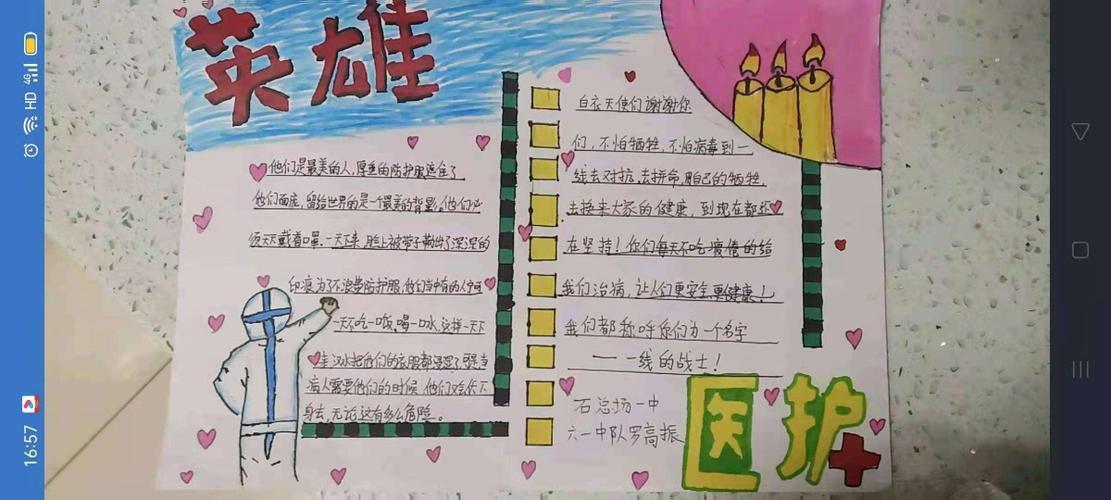 英雄
他们是最美的人,厚重的防护服遮住了
他们面庞,留给世界的是一个最美的背影。他们必
须天天戴着口罩,一天下来,脸上被带子勒出了深深的
印痕为了不浪费防护服,他们当中有的人宁可
一天不吃一口饭,喝一口水,这样一天下
来汗水把他们的衣服都浸湿了
病人需要他们的时候,他们又会伏下
身去,无论这有多么危险。
白衣天使们谢谢你
们,不怕牺牲,不怕病毒到一
线去对抗,去拼命,用自己的牺牲,
去换来大家的健康,到现在都还
在坚持!你们每天不吃疲倦的给
我们治病,让人们更安全更健康!
我们都称呼你们为一个名字
——一线的战士!
石总场一中
六一中队罗高振
医护
16:57
HD
4G